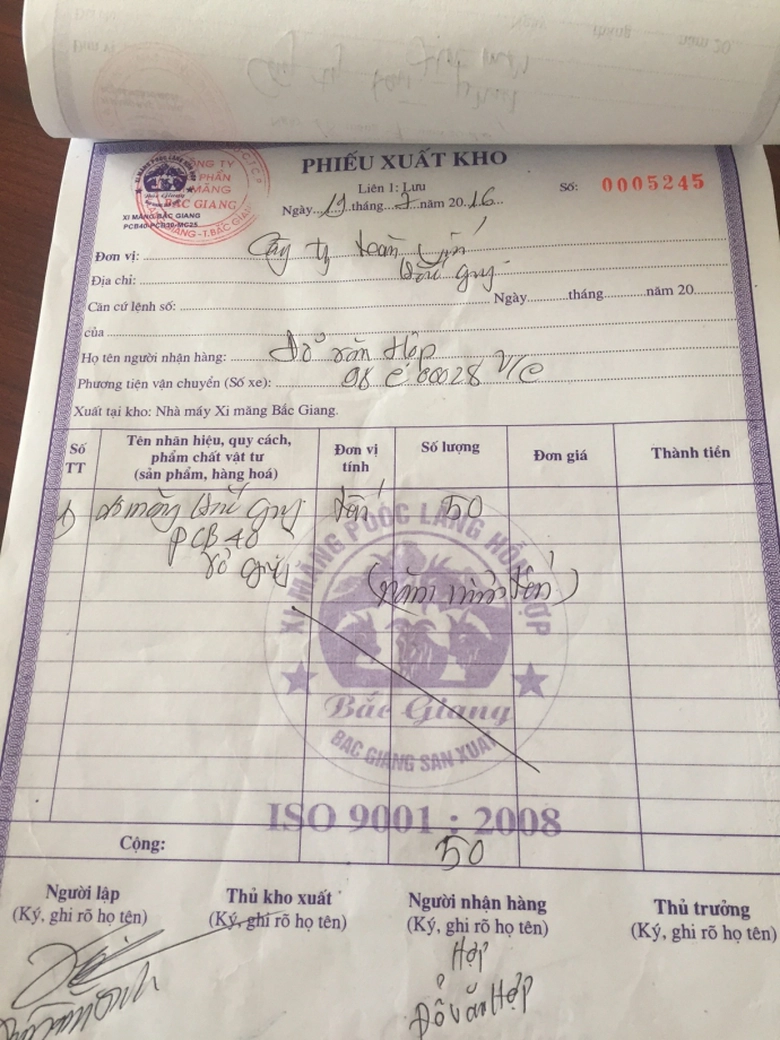 PHIẾU XUẤT KHO
Liên 1: Lưu
Số: 0005245
Ngày 19 tháng 7 năm 2016
CÔNG TY
PHẦN
MĂNG
BẮC GIANG
XI MĂNG BẮC GIANG
PCB40-PCB30-MC25
Đơn vị: Công ty toàn
Địa chỉ:
Căn cứ lệnh số: Ngày tháng năm 20
của
Họ tên người nhận hàng: Đỗ văn Hợp
Phương tiện vận chuyển (Số xe): 98C 00028 V/C
Xuất tại kho: Nhà máy Xi măng Bắc Giang.
Số TT
Tên nhãn hiệu, quy cách, phẩm chất vật tư (sản phẩm, hàng hoá)
Đơn vị tính
Số lượng
Đơn giá
Thành tiền
1 xi măng tấn 50
PCB 40
(năm mươi tấn)
XI MĂNG POÓC LĂNG HỖN HỢP
Bắc Giang
BAC GIANG SAN XUAT
ISO 9001 : 2008
Cộng: 50
Người lập
(Ký, ghi rõ họ tên)
Thủ kho xuất
(Ký, ghi rõ họ tên)
Người nhận hàng
(Ký, ghi rõ họ tên)
Thủ trưởng
(Ký, ghi rõ họ tên)
Hợp
Đỗ văn Hợp